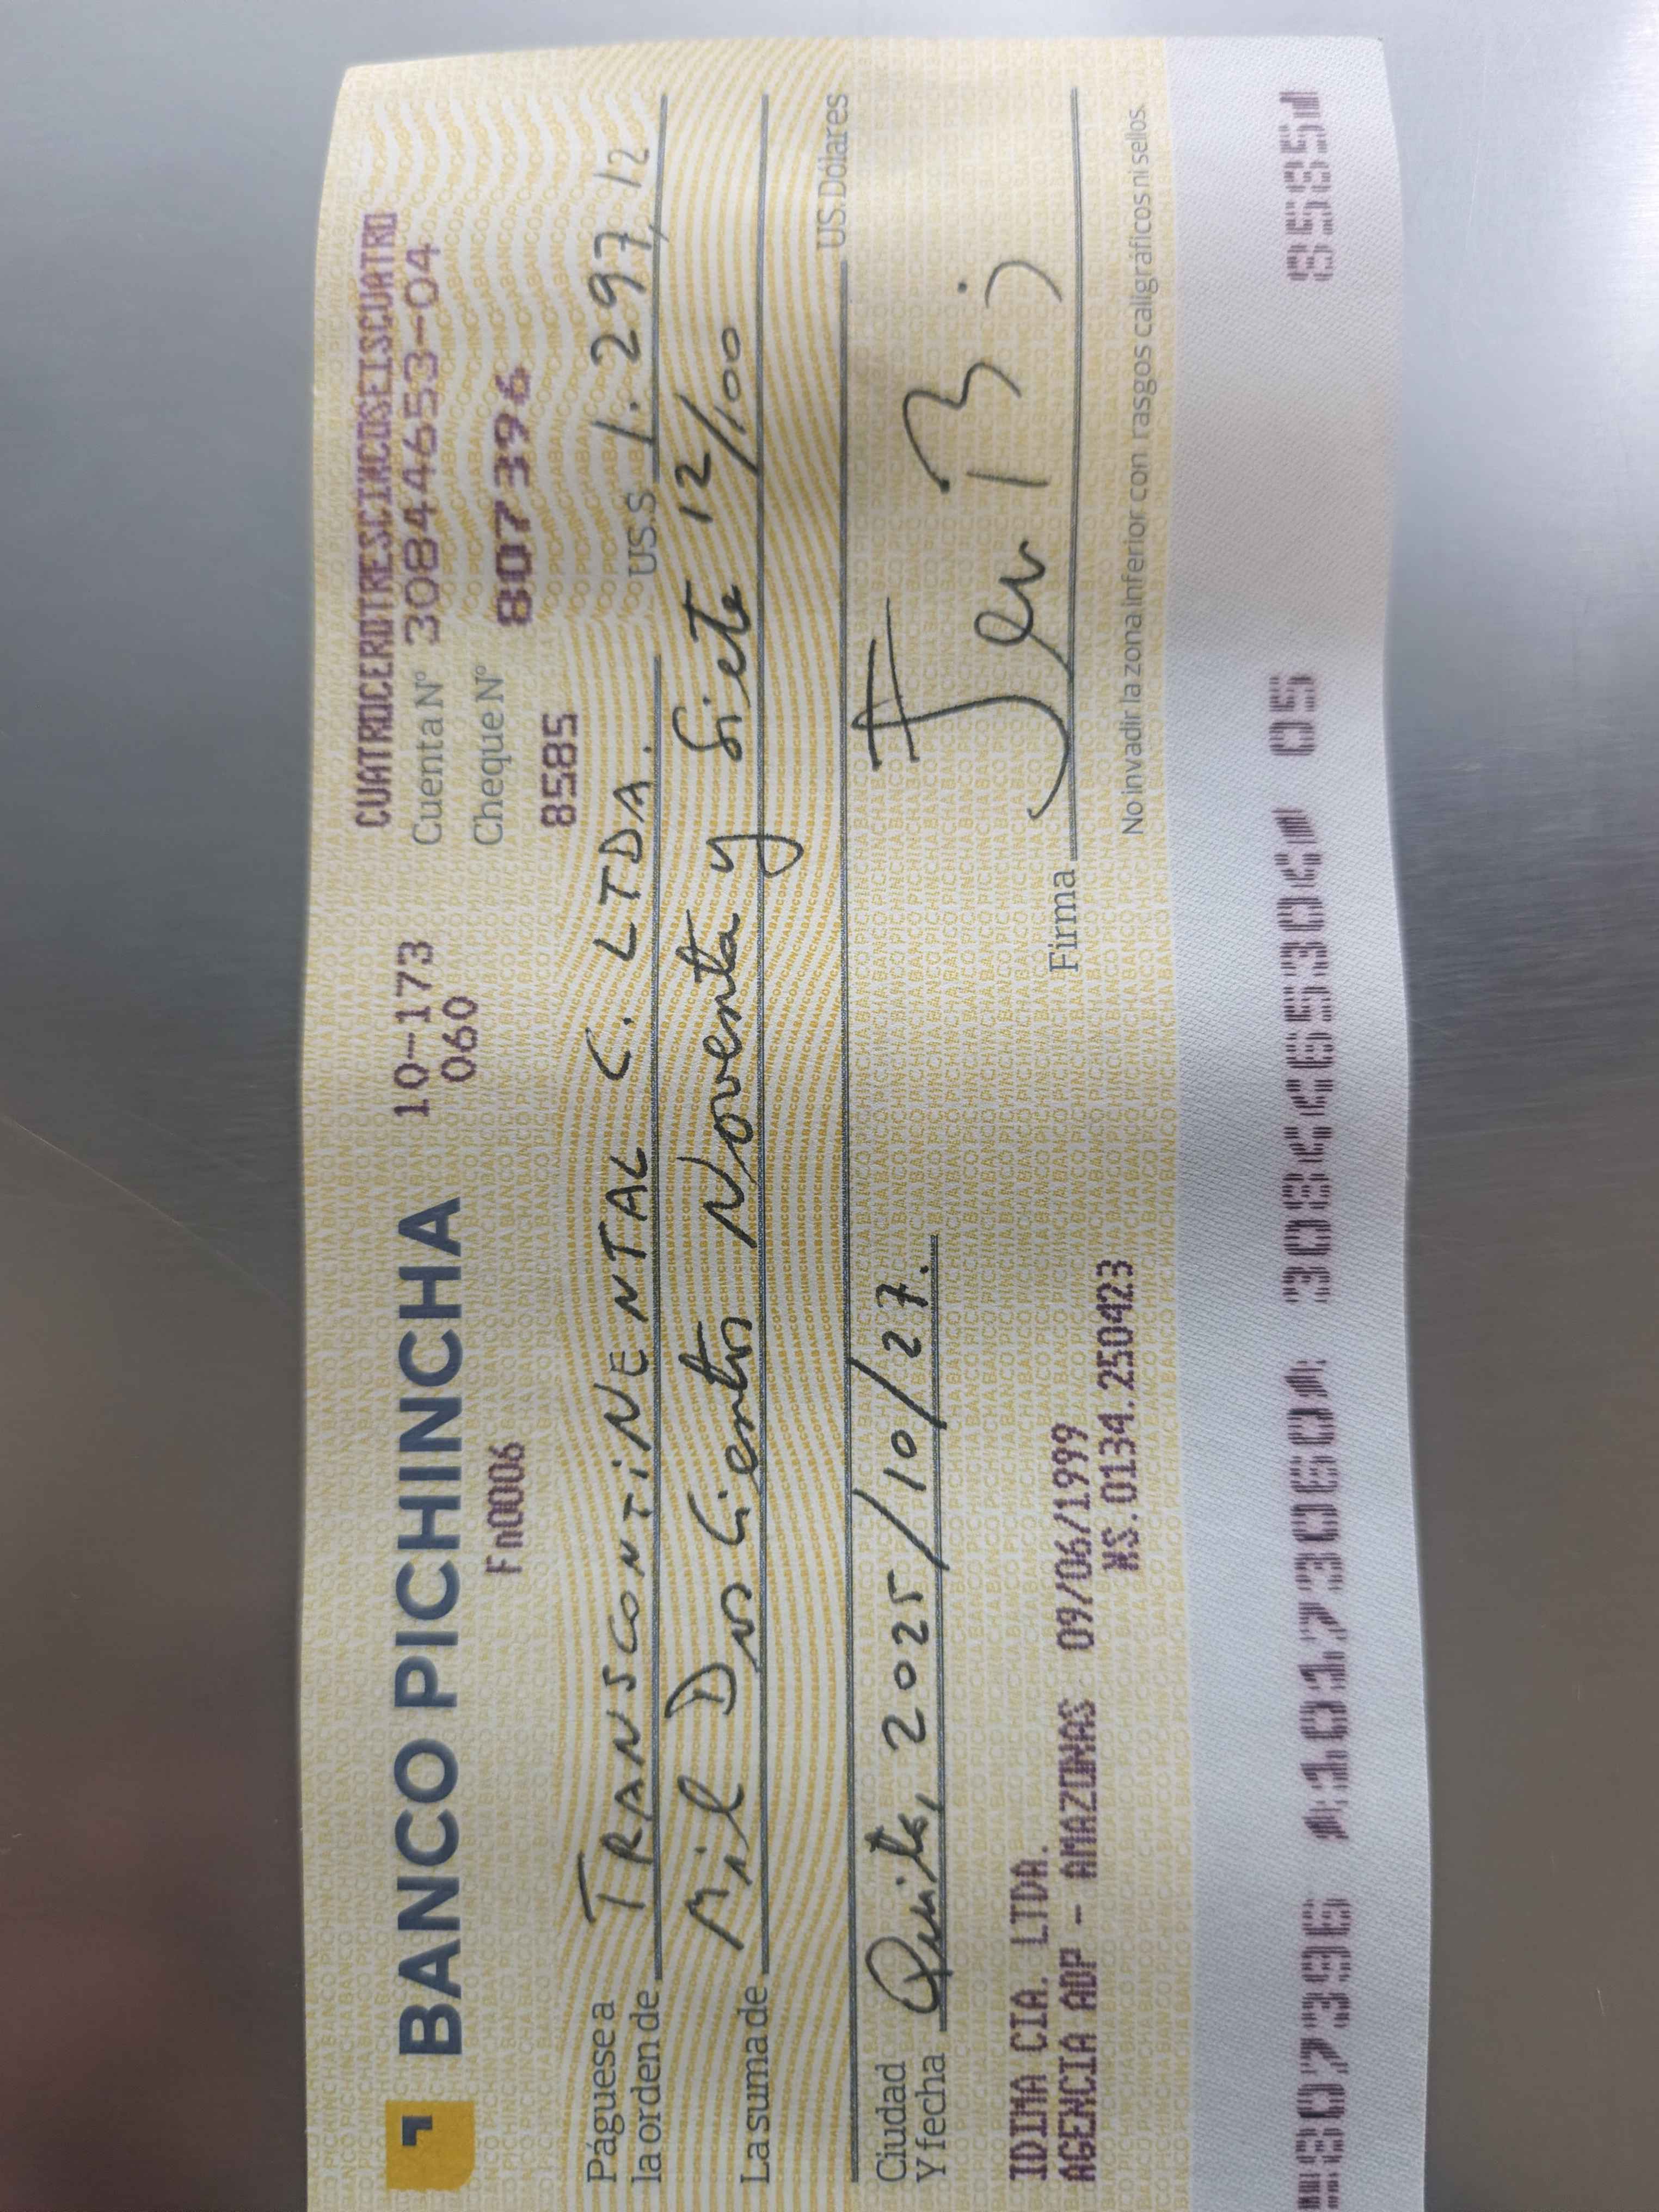 CUATROCEROTRESCINCOSEISCUATRO
BANCO PICHINCHA 10-173 Cuenta Nº 30844653-04
060 Cheque Nº 807396
Fn0006
8585
Páguese a
la orden de TRANSCONTiNENTAL C. LTDA. US.$ 1.297,12
La suma de Mil Dos Cientos Noventa y Siete 12/100
US. Dólares
Ciudad
Y fecha Quito, 2025/10/27.
IDIMA CIA. LTDA.
AGENCIA ADP - AMAZONAS 09/06/1999
NS.0134.250423
Firma
No invadir la zona inferior con rasgos caligráficos ni sellos.
807396 10173060 3084465304 05 8585